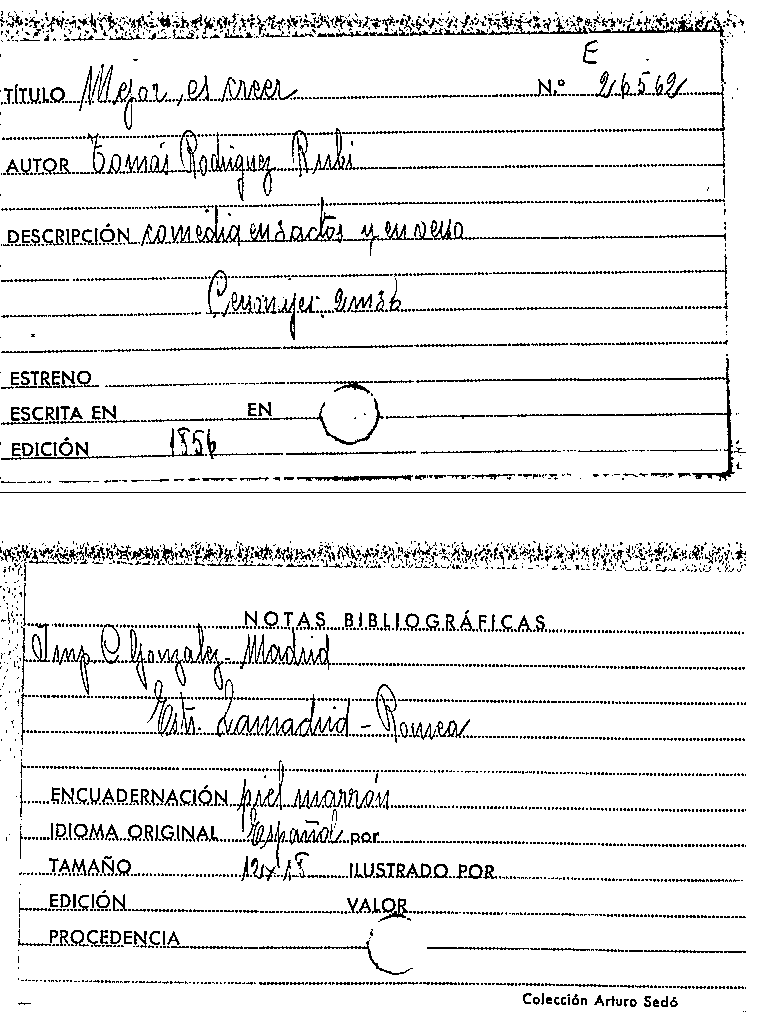 E
TÍTULO Mejor, es creer N.º 26562
AUTOR Tomás Rodriguez Rubi
DESCRIPCIÓN comedia en 3 actos y en verso
Personajes. 2m3h
ESTRENO
ESCRITA EN EN
EDICIÓN 1856
NOTAS BIBLIOGRÁFICAS
Imp C Gonzalez - Madrid
Estr. Lamadrid - Romea
ENCUADERNACIÓN piel marrón
IDIOMA ORIGINAL Español por
TAMAÑO 12x18 ILUSTRADO POR
EDICIÓN VALOR
PROCEDENCIA
Colección Arturo Sedó